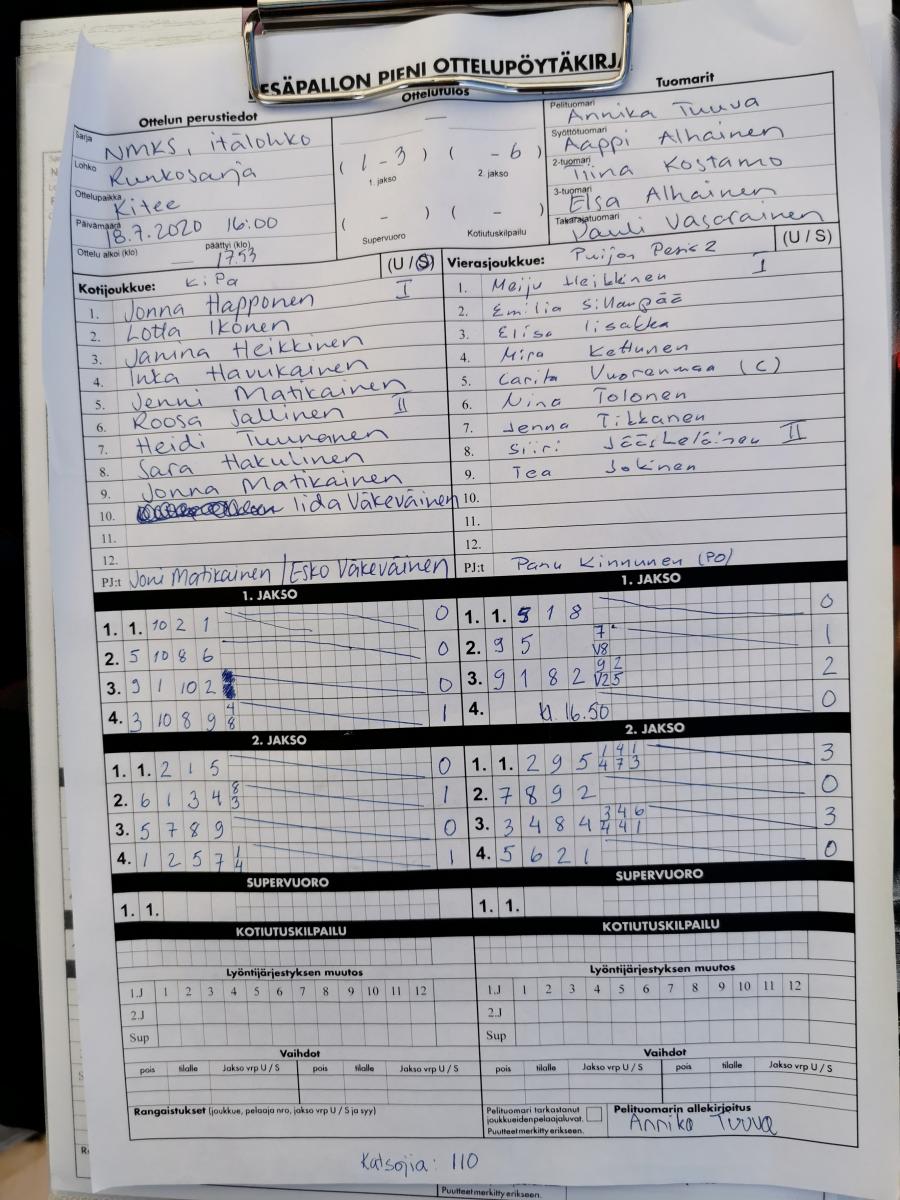 ESÄPALLON PIENI OTTELUPÖYTÄKIRJA
Ottelun perustiedot
Ottelutulos
Tuomarit
Sarja NMKS, itälohko
Lohko Runkosarja
Ottelupaikka Kitee
Päivämäärä 18.7.2020 16:00
Ottelu alkoi (klo) — päättyi (klo) 17.53
—
( 1 - 3 ) ( - 6 )
1. jakso 2. jakso
( - ) ( - )
Supervuoro Kotiutuskilpailu
Pelituomari Annika Tuuva
Syöttötuomari Aappi Alhainen
2-tuomari Tiina Kostamo
3-tuomari Elsa Alhainen
Takarajatuomari Pauli Vasarainen
Kotijoukkue: KiPa (U / S)
1. Jonna Happonen I
2. Lotta Ikonen
3. Janina Heikkinen
4. Inka Havukainen
5. Jenni Matikainen
6. Roosa Jallinen II
7. Heidi Tuunanen
8. Sara Hakulinen
9. Jonna Matikainen
10. Iida Väkeväinen
11.
12.
PJ:t Joni Matikainen / Esko Väkeväinen
Vierasjoukkue: Puijon Pesis 2 (U / S)
1. Meiju Heikkinen I
2. Emilia Sillanpää
3. Elisa Iisakka
4. Mira Kettunen
5. Carita Vuorenmaa (C)
6. Nina Tolonen
7. Jenna Tikkanen
8. Siiri Jääskeläinen II
9. Tea Jokinen
10.
11.
12.
PJ:t Panu Kinnunen (PO)
1. JAKSO
1. 1. 10 2 1 0
2. 5 10 8 6 0
3. 9 1 10 2 0
4. 3 10 8 9 4 8 1
2. JAKSO
1. 1. 2 1 5 0
2. 6 1 3 4 8 3 1
3. 5 7 8 9 0
4. 1 2 5 7 1 4 1
SUPERVUORO
1. 1.
KOTIUTUSKILPAILU
1. JAKSO
1. 1. 5 1 8 0
2. 9 5 7 V8 1
3. 9 1 8 2 9 2 V25 2
4. kl. 16.50 0
2. JAKSO
1. 1. 2 9 5 1 4 1 4 7 3 3
2. 7 8 9 2 0
3. 3 4 8 4 3 4 6 4 4 1 3
4. 5 6 2 1 0
SUPERVUORO
1. 1.
KOTIUTUSKILPAILU
Lyöntijärjestyksen muutos
1.J 1 2 3 4 5 6 7 8 9 10 11 12
2.J
Sup
Vaihdot
pois tilalle Jakso vrp U / S pois tilalle Jakso vrp U / S
Lyöntijärjestyksen muutos
1.J 1 2 3 4 5 6 7 8 9 10 11 12
2.J
Sup
Vaihdot
pois tilalle Jakso vrp U / S pois tilalle Jakso vrp U / S
Rangaistukset (joukkue, pelaaja nro, jakso vrp U / S ja syy)
Pelituomari tarkastanut
joukkueidenpelaajaluvat.
Puutteet merkitty erikseen.
Pelituomarin allekirjoitus
Annika Tuuva
Katsojia: 110
Puutteet merkitty erikseen.